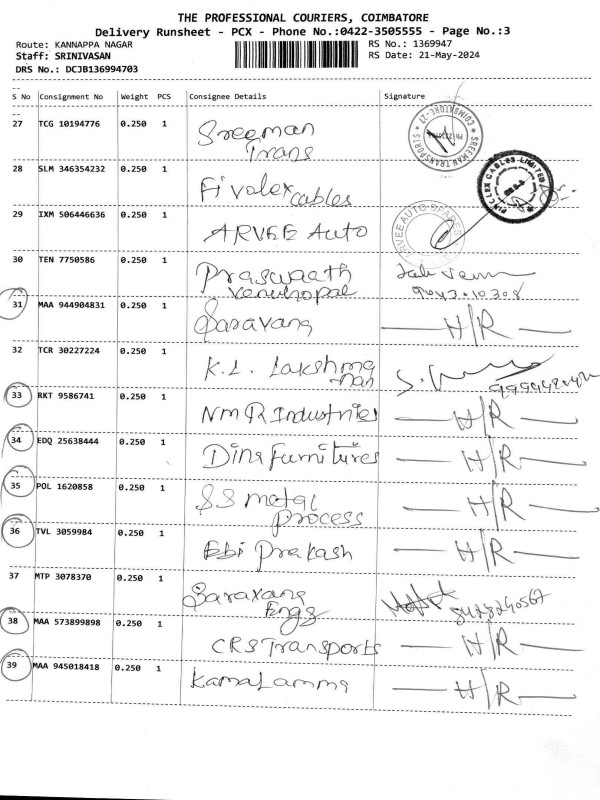 THE PROFESSIONAL COURIERS, COIMBATORE
Delivery Runsheet - PCX - Phone No.:0422-3505555 - Page No.:3
Route: KANNAPPA NAGAR RS No.: 1369947
Staff: SRINIVASAN RS Date: 21-May-2024
DRS No.: DCJB136994703
--
S No Consignment No Weight PCS Consignee Details Signature
--
27 TCG 10194776 0.250 1 Sreeman
Trans
SREEMAN TRANSPORTS
COIMBATORE-27
28 SLM 346354232 0.250 1 Fivolex cables
29 IXM 506446636 0.250 1 ARVEE Auto
ARVEE AUTO SPARES
30 TEN 7750586 0.250 1 Praswaath
Venuhopal
31 MAA 944904831 0.250 1 Saravang H/R
32 TCR 30227224 0.250 1 K.L. Lakshmg
nan
33 RKT 9586741 0.250 1 NMR Industries H/R
34 EDQ 25638444 0.250 1 Ding Furnitures H/R
35 POL 1620858 0.250 1 SS metal
process H/R
36 TVL 3059984 0.250 1 Ebi Prakash H/R
37 MTP 3078370 0.250 1 Saravang
Engg
38 MAA 573899898 0.250 1 CRS Transports H/R
39 MAA 945018418 0.250 1 Kamalamma H/R